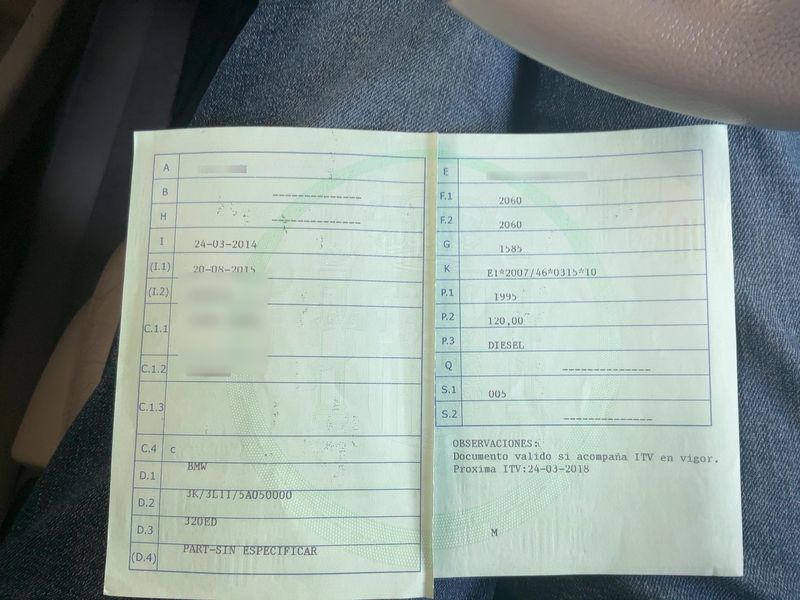 A
B -------------
H -------------
I 24-03-2014
(I.1) 20-08-2015
(I.2)
C.1.1
C.1.2
C.1.3
C.4 c
D.1 BMW
D.2 3K/3L11/5A050000
D.3 320ED
(D.4) PART-SIN ESPECIFICAR
E
F.1 2060
F.2 2060
G 1585
K E1*2007/46*0315*10
P.1 1995
P.2 120,00
P.3 DIESEL
Q -------------
S.1 005
S.2 -------------
OBSERVACIONES:
Documento valido si acompaña ITV en vigor.
Proxima ITV:24-03-2018
M